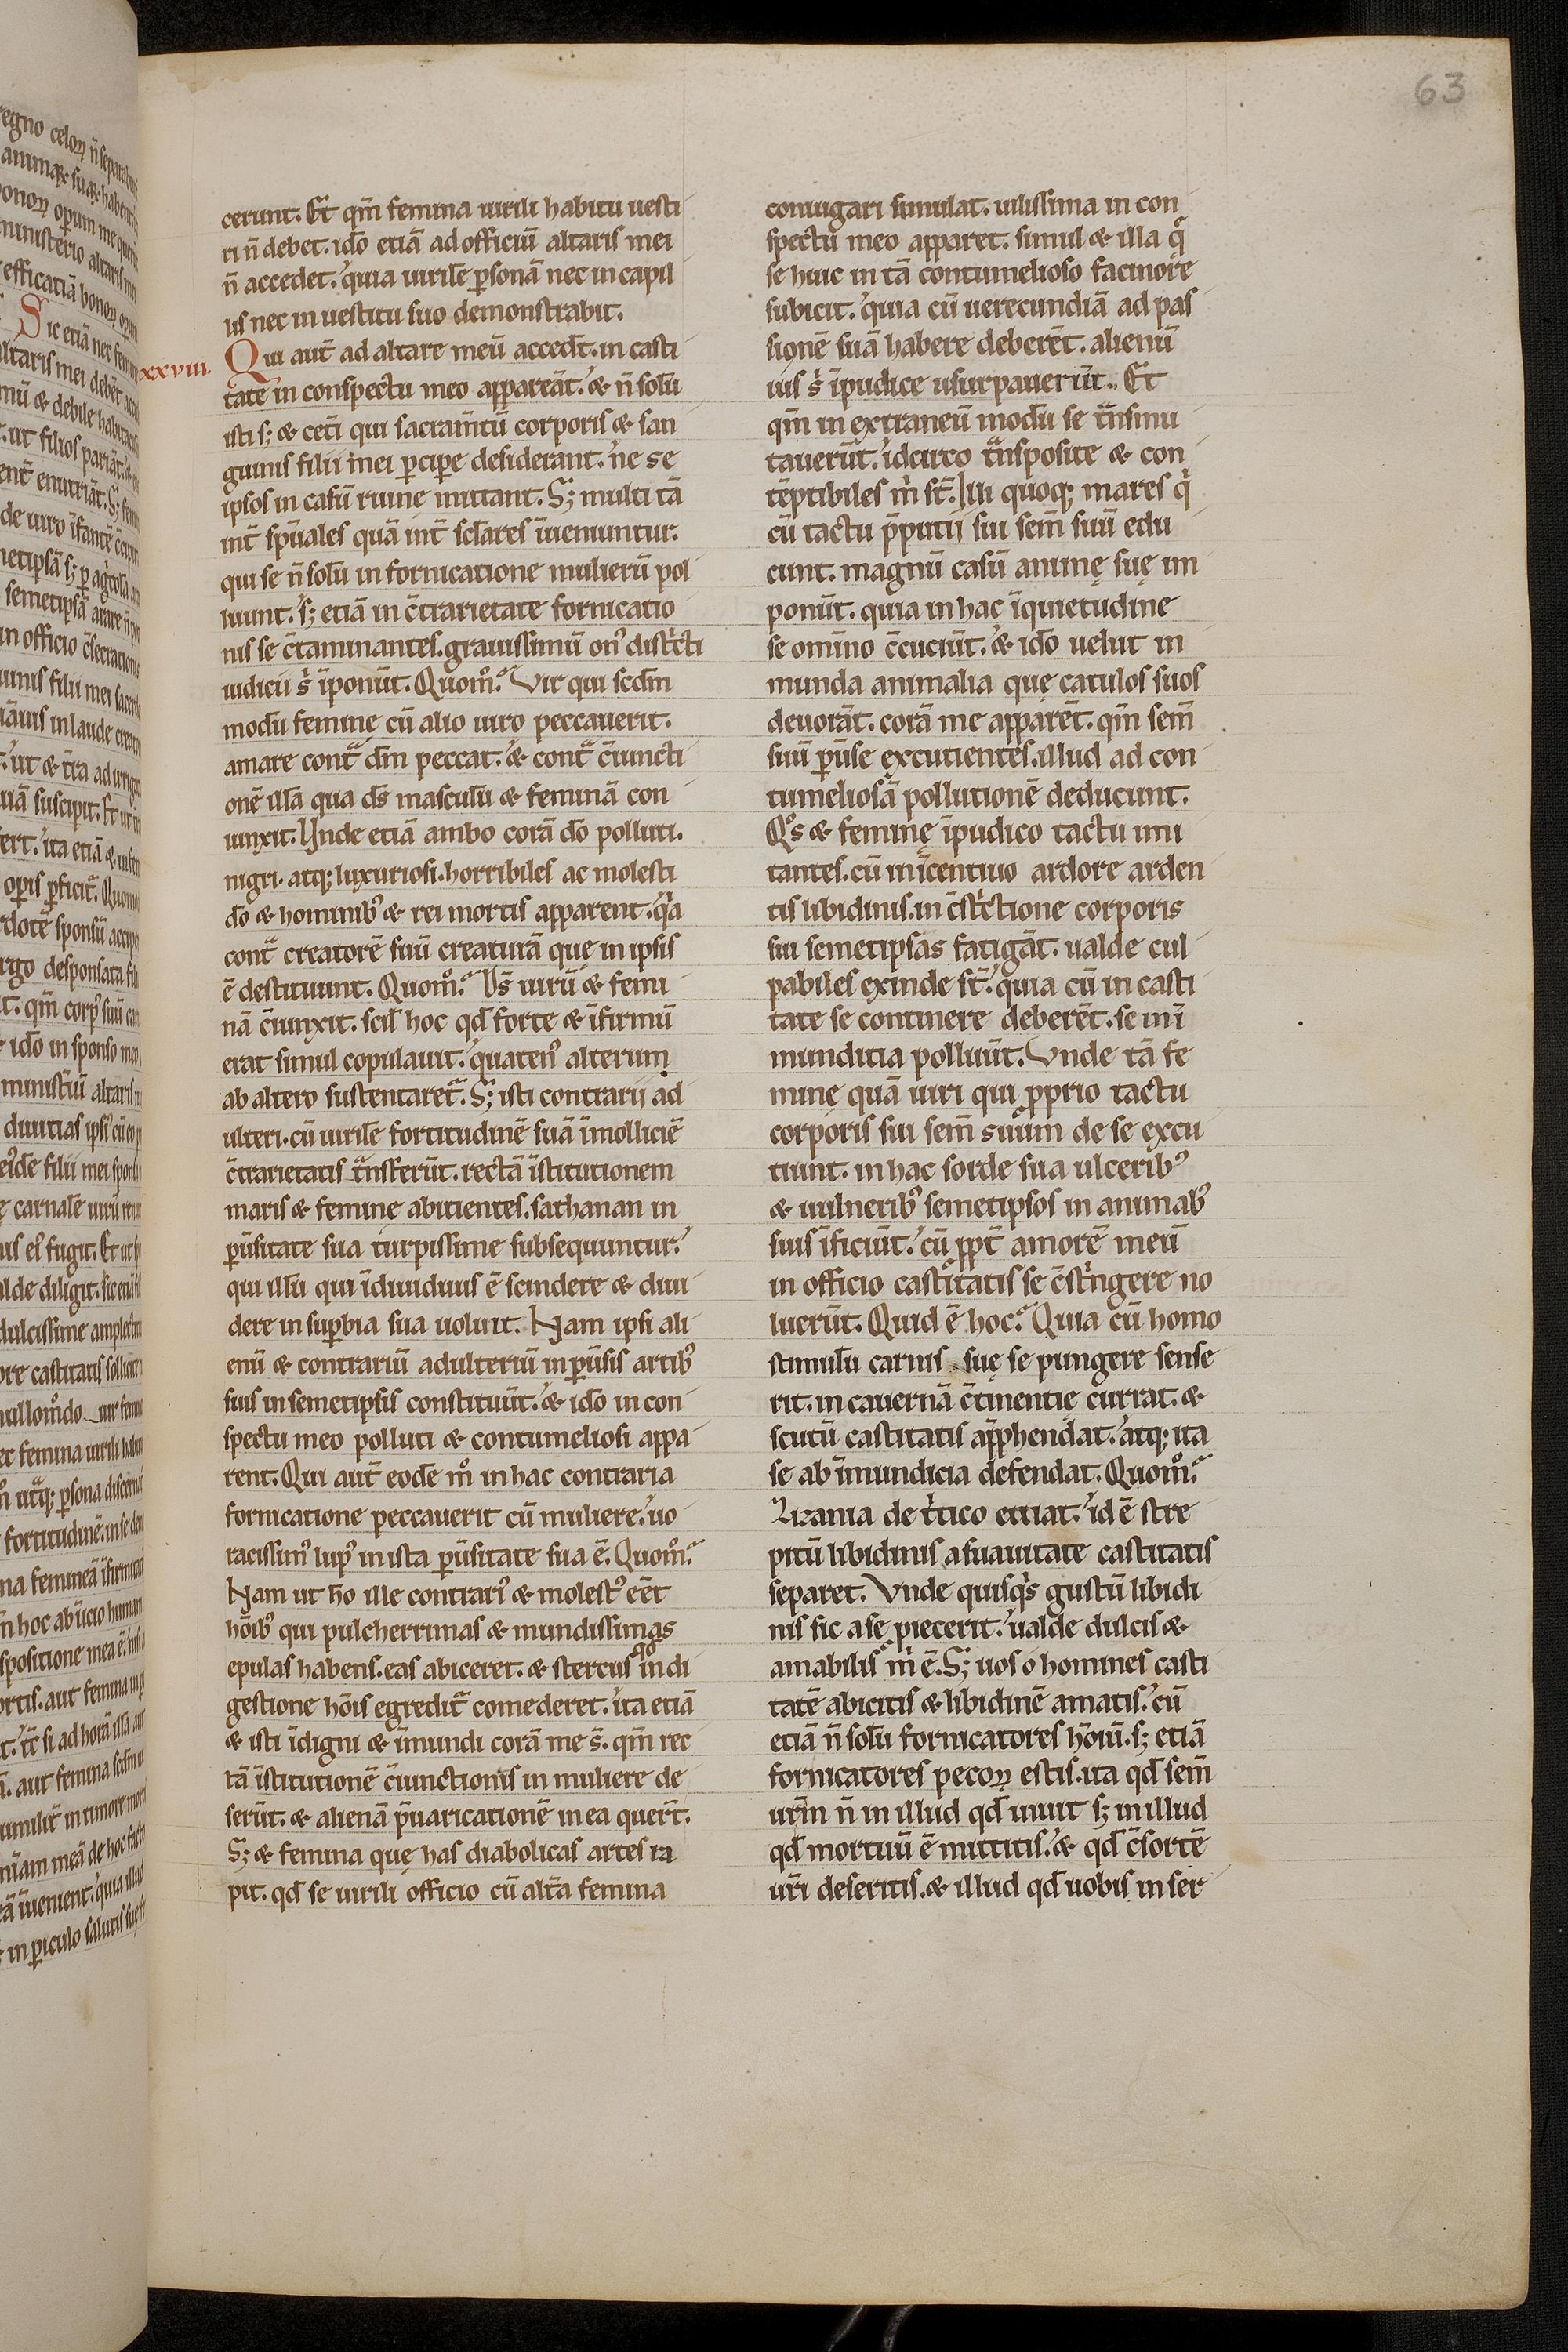 63
cerunt. Et qm̄ femina uirili habitu uesti
ri n̄ debet. ido̅ etiā ad officiū altaris mei
n̄ accedet. quia uirilē ꝑsonā nec in capil
lis nec in uestitu suo demonstrabit.
xxviii. Qui aut̄ ad altare meū accedt̄. in casti
tate in conspectu meo appareāt. & n̄ solū
isti s; & cet̄i qui sacram̄tū corporis & san
guinis filii mei ꝑcipe desiderant. ne se
ipsos in casū ruine mittant. S; multi tā
int̄ sp̄uales quā int̄ sclares īueniuntur.
qui se n̄ solū in fornicatione mulierū pol
luunt. s; etiā in c̄trarietate fornicatio
nis se c̄taminantes. grauissimū on᾿ districti
iudicii sⁱ īponūt. Quom̊? Vir qui scdm
modū feminę cū alio uiro peccauerit.
amare cont̄ dm̄ peccat. & cont̄ c̄iuncti
onē illā qua ds̄ masculū & feminā con
iunxit. Unde etiā ambo corā do̅ polluti.
nigri. atq; luxuriosi. horribiles ac molesti
do̅ & hominib᾿ & rei mortis apparent. qⁱa
cont̄ creatorē suū creaturā quę in ipsis
ē destituunt. Quom̊? Ds̄ uirū & femi
nā c̄iunxit. scil̄ hoc qd̄ forte & īfirmū
erat simul copulauit. quaten᾿ alterum
ab altero sustentaret᾿. S; isti contrarii ad
ulteri. cū uirilē fortitudinē suā ī molliciē
c̄trarietatis t̄nsferūt. rectā īstitutionem
maris & feminę abicientes. sathanan in
ꝑūsitate sua turpissime subsequuntur.
qui illū qui īdiuiduus ē scindere & diui
dere in suꝑbia sua uoluit. Nam ipsi ali
enū & contrariū adulteriū in ꝑūsis artib᾿
suis in semetipsis constituūt. & ido̅ in con
spectu meo polluti & contumeliosi appa
rent. Qui aut̄ eodē m̊ in hac contraria
fornicatione peccauerit cū muliere. uo
racissim᾿ lup᾿ in ista ꝑūsitate sua ē. Quom̊?
Nam ut ho̅ ille contrari᾿ & molest᾿ eēt
ho̅ib᾿ qui pulcherrimas & mundissimas
epulas habens. eas abiceret. & stercus qd̄ in di
gestione ho̅is egredit᾿ comederet. ita etiā
& isti īdigni & īmundi corā me s̄. qm̄ rec
tā īstitutionē c̄iunctionis in muliere de
serūt. & alienā p̄uaricationē in ea quert̄.
S; & femina quę has diabolicas artes ra
pit. qd̄ se uirili officio cū alt̄a femina
coniugari simulat. uilissima in con
spectu meo apparet. simul & illa q̄
se huic in tā contumelioso facinore
subicit. quia cū uerecundiā ad pas
sionē suā habere deberēt. alienū
ius sⁱ īpudice usurpauerūt. Et
qm̄ in extraneū modū se t̄nsmu
tauerūt. idcirco t̄nsposite & con
tēptibiles mⁱ st̄. Illi quoq; mares qⁱ
cū tactu p̄putii sui sem̄ suū edu
cunt. magnū casū animę suę im
ponūt. quia in hac īquietudine
se omīno c̄cuciūt. & ido̅ uelut in
munda animalia quę catulos suos
deuorāt. corā me apparēt. qm̄ sem̄
suū ꝑūse excutientes. illud ad con
tumeliosā pollutionē deducunt.
Qⁱs & feminę īpudico tactu imi
tantes. cū in īcentiuo ardore arden
tis libidinis. in c̄strictione corporis
sui semetipsas fatigāt. ualde cul
pabiles exinde st̄. quia cū in casti
tate se continere deberēt. se in ī
mundicia polluūt. Vnde tā fe
minę quā uiri qui ꝓprio tactu
corporis sui sem̄ suum de se excu
tiunt. in hac sorde sua ulcerib᾿
& uulnerib᾿ semetipsos in animab᾿
suis īficiūt. cū ꝓpt̄ amorē meū
in officio castitatis se c̄stⁱngere no
luerūt. Quid ē hoc? Quia cū homo
stimulū carnis suę se pungere sense
rit. in cauernā c̄tinentię currat. &
scutū castitatis app̄hendat. atq; ita
se ab īmundicia defendat. Quom̊?
Zizania de tⁱtico eiciat. id ē stre
pitū libidinis a suauitate castitatis
separet. Vnde quisqⁱs gustū libidi
nis sic a se ꝓiecerit. ualde dulcis &
amabilis mⁱ ē. S; uos o homines casti
tatē abicitis & libidinē amatis. cū
etiā n̄ solū fornicatores ho̅iū. s; etiā
fornicatores pecoꝝ estis. ita qd̄ sem̄
urm̄ n̄ in illud qd̄ uiuit s; in illud
qd̄ mortuū ē mittitis. & qd̄ c̄sortē
ur̄i deseritis. & illud qd̄ uobis in ser